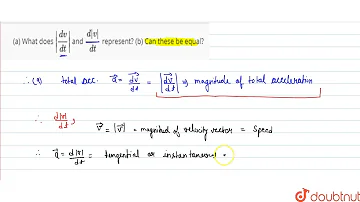 (a) What does |dv/dt| and d|v|/dt represent? (b) Can these be equal?
∴ (a) total acc. a⃗ = dv⃗/dt = |dv⃗/dt| ⇒ magnitude of total acceleration
∴ d|v|/dt,
v⃗ = |v⃗| = magnitud of velocity vector = Speed
∴ a⃗ = d|v|/dt = tangential or instantaneous
doubtnut